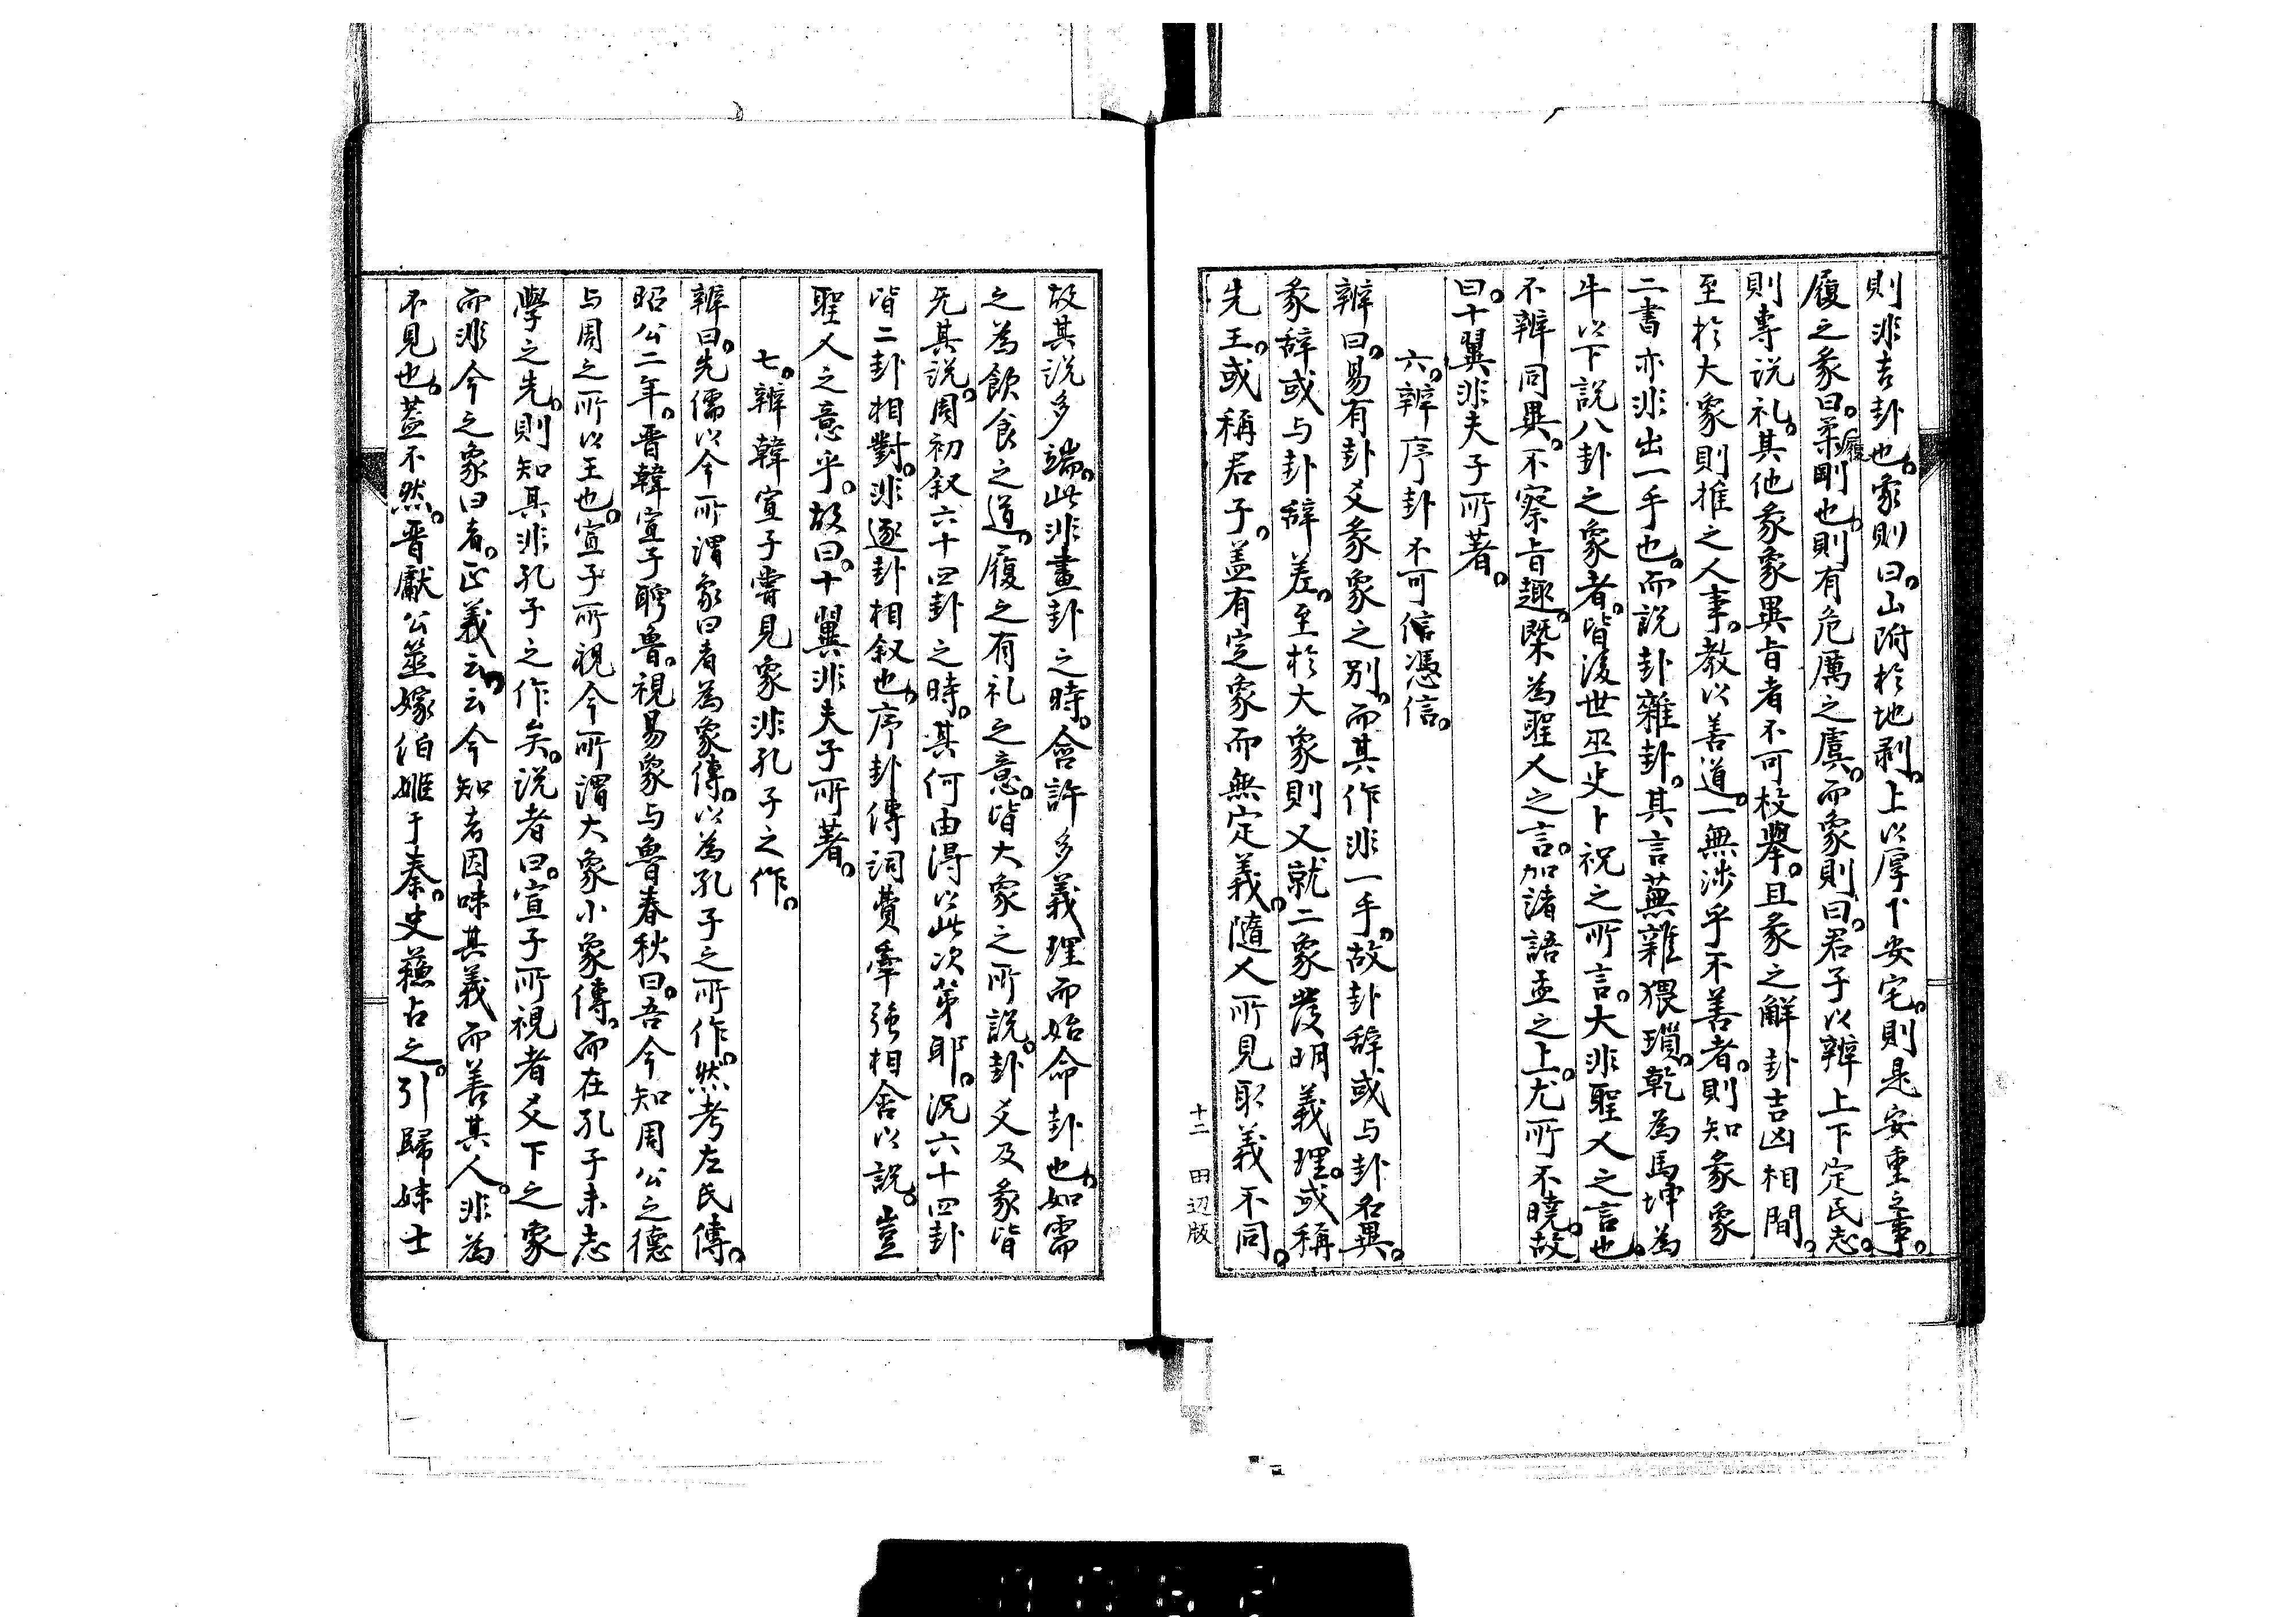 則非吉卦也。象則曰。山附於地剥。上以厚下安宅。則是安重之事。
履之彖曰。柔履剛也。則有危厲之虞。而象則曰。君子以辨上下定民志。
則専説礼。其他彖象異旨者不可枚擧。且彖之解卦吉凶相間。
至於大象則推之人事。教以善道。一無渉乎不善者。則知彖象
二書亦非出一手也。而説卦雜卦。其言蕪雜猥瑣。乾為馬坤為
牛以下説八卦之象者。皆後世巫史卜祝之所言。大非聖人之言也。
不辨同異。不察旨趣。槩為聖人之言。加諸語孟之上。尤所不曉。故
曰。十翼非夫子所著。
六。辨序卦不可信憑信。
辨曰。易有卦爻彖象之別。而其作非一手。故卦辞或与卦名異。
彖辞或与卦辞差。至於大象則又就二象發明義理。或稱
先王。或稱君子。蓋有定象而無定義。隨人所見取義不同。
十二 田辺版
故其説多端。此非畫卦之時。含許多義理而始命卦也。如需
之為飲食之道。履之有礼之意。皆大象之所説。卦爻及彖皆
无其説。周初叙六十四卦之時。其何由得以此次第耶。況六十四卦
皆二卦相對。非逐卦相叙也。序卦傳詞費牽強相合以説。豈
聖人之意乎。故曰。十翼非夫子所著。
七。辨韓宣子嘗見象非孔子之作。
辨曰。先儒以今所謂象曰者為象傳。以為孔子之所作。然考左氏傳。
昭公二年。晋韓宣子聘魯。視易象与魯春秋曰。吾今知周公之德
与周之所以王也。宣子所視今所謂大象小象傳。而在孔子未志
學之先。則知其非孔子之作矣。説者曰。宣子所視者爻下之象
而非今之象曰者。正義云云今知者因味其義而善其人。非為
不見也。蓋不然。晋獻公筮嫁伯姫于秦。史蘓占之。引歸妹士